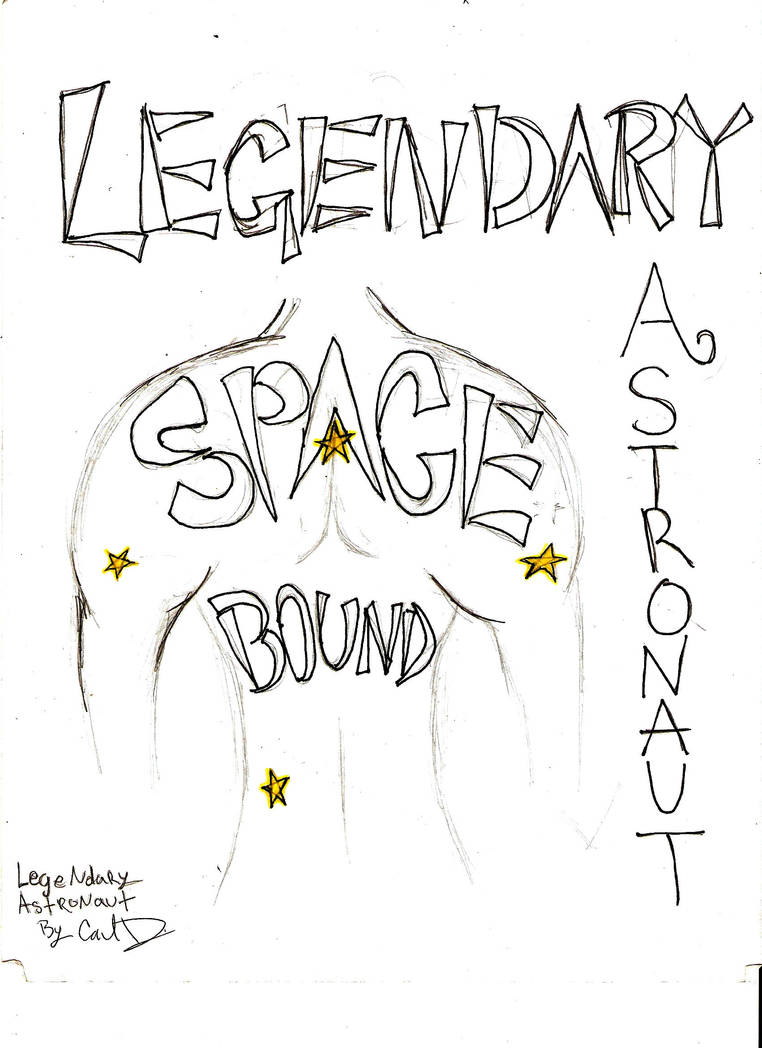 LEGENDARY
ASTRONAUT
SPACE
BOUND
Legendary
Astronaut
By Carl D.